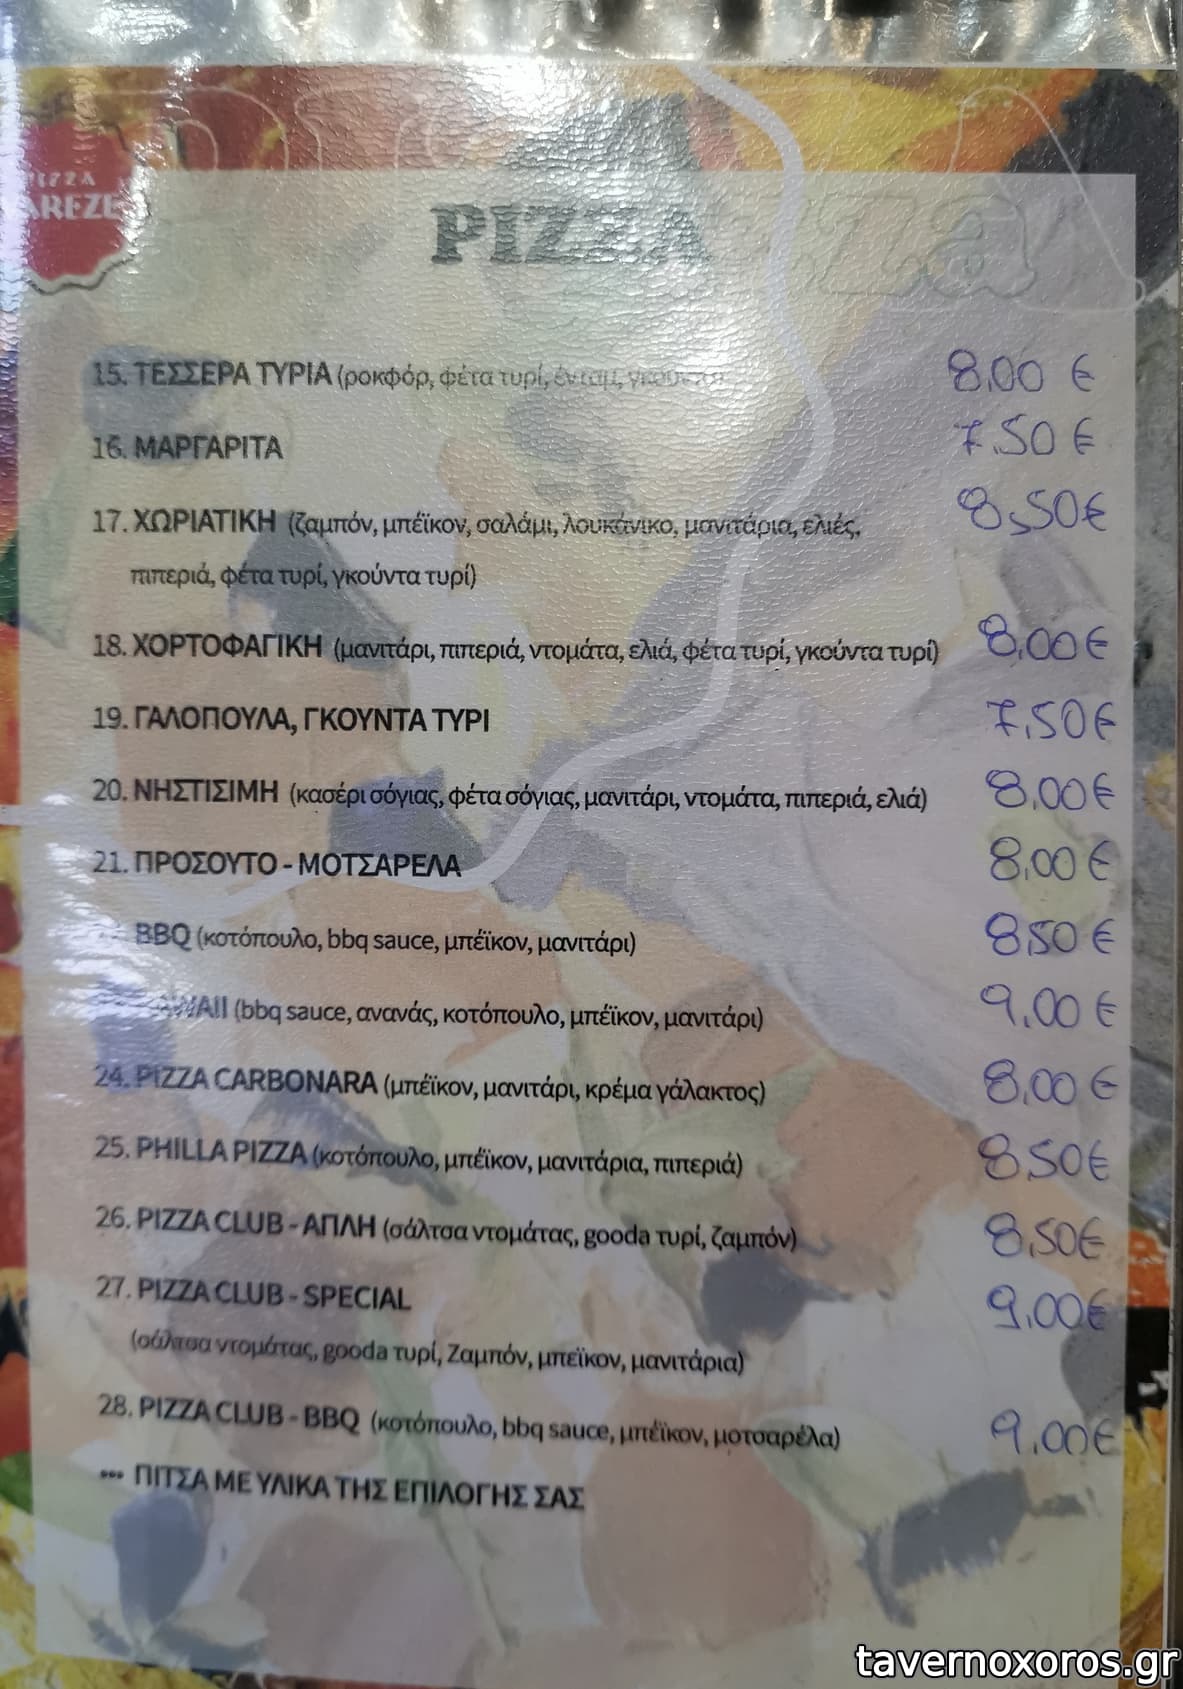 PIZZA
AREZE
PIZZA
15. ΤΕΣΣΕΡΑ ΤΥΡΙΑ (ροκφόρ, φέτα τυρί, ένταμ, γκούντα) 8.00 €
16. ΜΑΡΓΑΡΙΤΑ 7.50 €
17. ΧΩΡΙΑΤΙΚΗ (ζαμπόν, μπέϊκον, σαλάμι, λουκάνικο, μανιτάρια, ελιές, 8,50€
πιπεριά, φέτα τυρί, γκούντα τυρί)
18. ΧΟΡΤΟΦΑΓΙΚΗ (μανιτάρι, πιπεριά, ντομάτα, ελιά, φέτα τυρί, γκούντα τυρί) 8,00€
19. ΓΑΛΟΠΟΥΛΑ, ΓΚΟΥΝΤΑ ΤΥΡΙ 7,50€
20. ΝΗΣΤΙΣΙΜΗ (κασέρι σόγιας, φέτα σόγιας, μανιτάρι, ντομάτα, πιπεριά, ελιά) 8,00€
21. ΠΡΟΣΟΥΤΟ - ΜΟΤΣΑΡΕΛΑ 8,00€
BBQ (κοτόπουλο, bbq sauce, μπέϊκον, μανιτάρι) 8,50 €
AWAII (bbq sauce, ανανάς, κοτόπουλο, μπέϊκον, μανιτάρι) 9,00 €
24. PIZZA CARBONARA (μπέϊκον, μανιτάρι, κρέμα γάλακτος) 8,00 €
25. PHILLA PIZZA (κοτόπουλο, μπέϊκον, μανιτάρια, πιπεριά) 8,50€
26. PIZZA CLUB - ΑΠΛΗ (σάλτσα ντομάτας, gooda τυρί, ζαμπόν) 8,50€
27. PIZZA CLUB - SPECIAL 9,00€
(σάλτσα ντομάτας, gooda τυρί, Ζαμπόν, μπεϊκον, μανιτάρια)
28. PIZZA CLUB - BBQ (κοτόπουλο, bbq sauce, μπέϊκον, μοτσαρέλα) 9,00€
... ΠΙΤΣΑ ΜΕ ΥΛΙΚΑ ΤΗΣ ΕΠΙΛΟΓΗΣ ΣΑΣ
tavernoxoros.gr